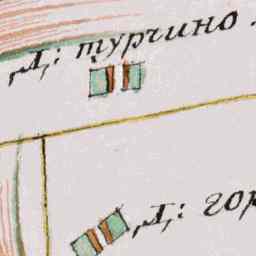 Д: турчино.
Д: гор